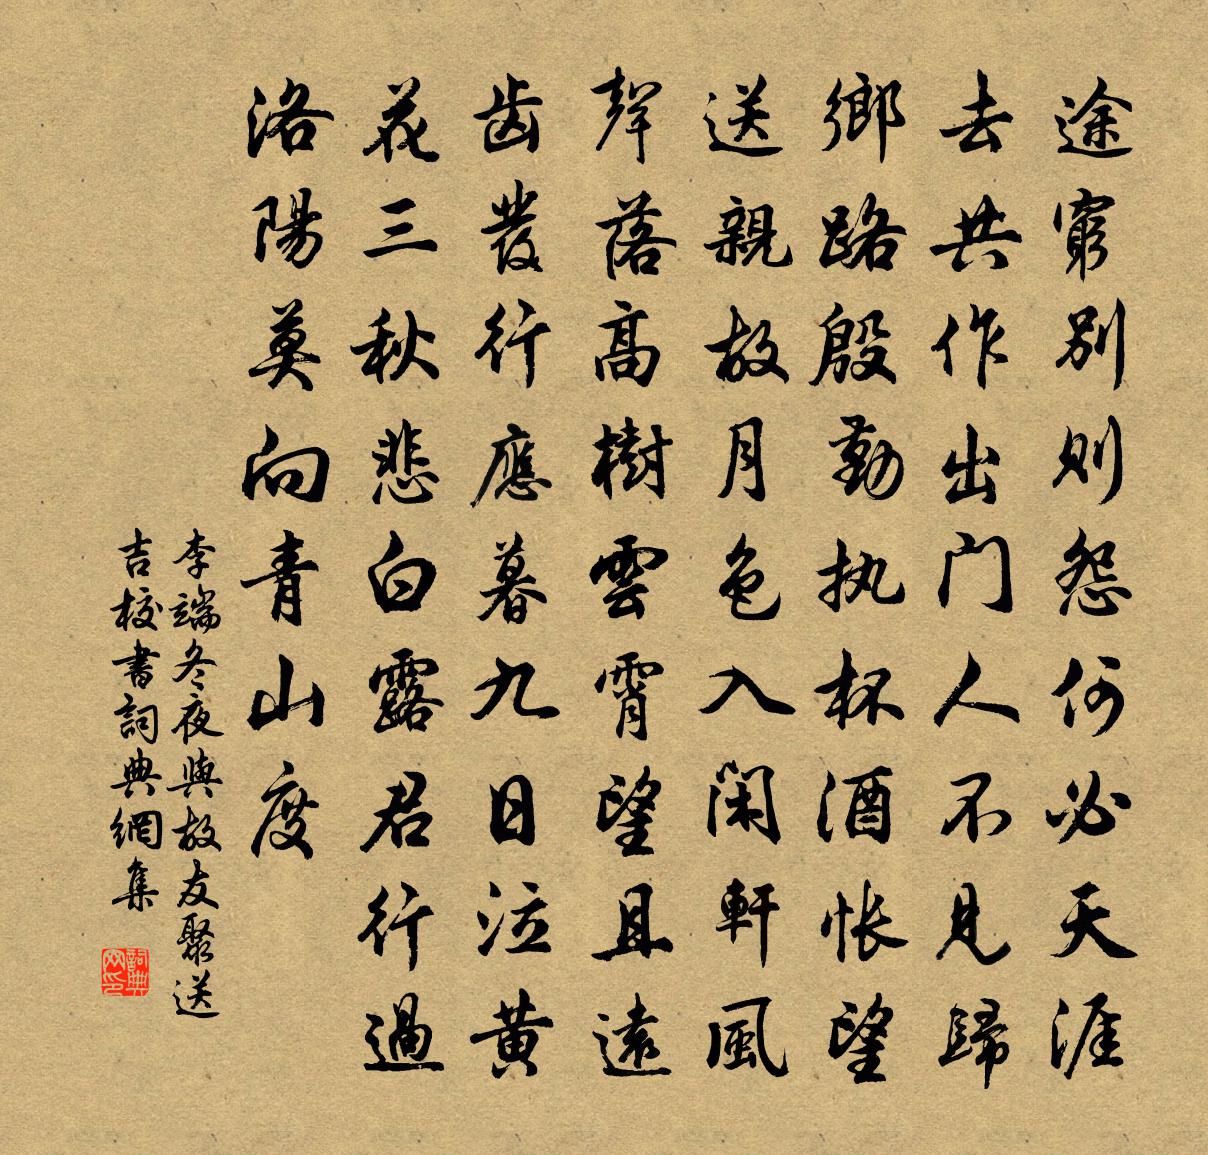 途窮別則怨何必天涯
去共作出门人不見歸
鄉路殷勤执杯酒悵望
送親故月色入閑軒風
聲落高樹雲霄望且遠
齿發行應暮九日泣黄
花三秋悲白露君行過
洛陽莫向青山度
李端冬夜與故友聚送
吉校書詞典網集
詞典网印